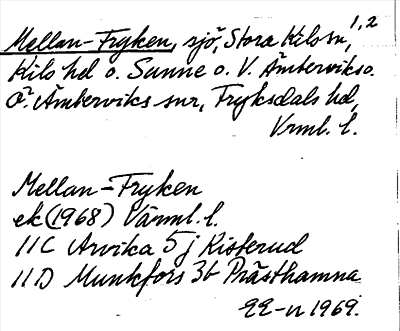 Mellan-Fryken, sjö, Stora Kil sn,¹,²
Kils hd o. Sunne o. V. Ämterviks o.
Ö. Ämterviks snr, Fryksdals hd,
Vrml. l.
Mellan-Fryken
ek (1968) Värml. l.
11C Arvika 5j Kisterud
11D Munkfors 3b Prästhamna
1969.